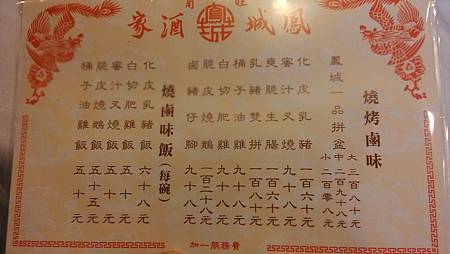 鳳城酒家
燒烤鹵味
大 三百八十元
鳳城一品拼盆 中 二百九十八元
小 二百零八元
化皮乳豬 一百六十元
蜜汁叉燒 九十八元
爽脆生腸 一百六十元
乳豬雙拼 一百八十元
桶子油雞 九十八元
白切肥雞 九十八元
脆皮燒鵝 一百二十八元
鹵豬仔腳 九十八元
燒鹵味飯(每碗)
化皮乳豬飯 六十八元
白切肥雞飯 五十元
蜜汁叉燒飯 五十元
脆皮燒鵝飯 五十五元
桶子油雞飯 五十元
加一服務費